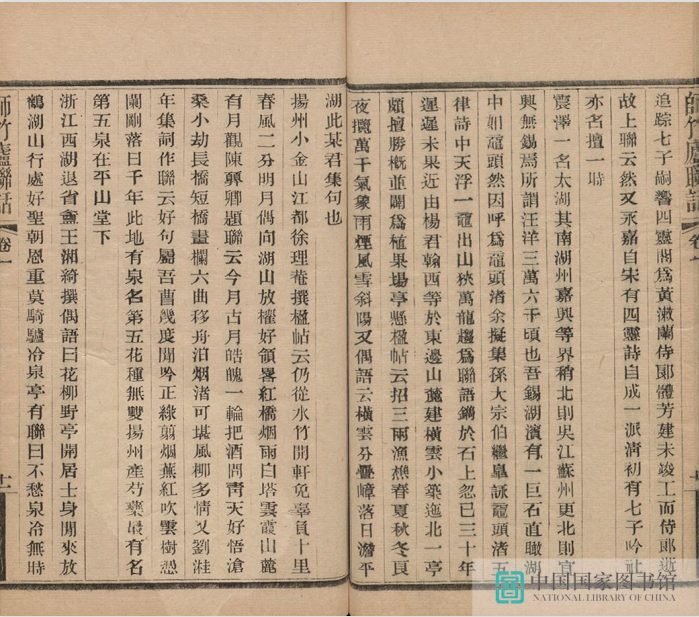 師竹廬聯話 卷一 十
追踪七子嗣響四靈閣爲黃漱蘭侍郎體芳建未竣工而侍郎逝
故上聯云然又永嘉自宋有四靈詩自成一派清初有七子吟社
亦名擅一時
震澤一名太湖其南湖州嘉興等界稍北則吳江蘇州更北則宜
興無錫爲所謂汪洋三萬六千頃也吾錫湖濱有一巨石直瞰湖
中如黿頭然因呼爲黿頭渚余擬集孫大宗伯繼臯詠黿頭渚五
律詩中天浮一黿出山狹萬龍趨爲聯語鐫於石上忽已三十年
遲遲未果近由楊君翰西等於東邊山麓建橫雲小築迤北一亭
頗擅勝槪並闢爲植果場亭懸楹帖云招三兩漁樵春夏秋冬良
夜攬萬千氣象雨煙風雪斜陽又偶語云橫雲分疊嶂落日澹平
湖此某君集句也
揚州小金山江都徐理菴撰楹帖云仍從水竹開軒免辜負十里
春風二分明月偶向湖山放櫂好領畧紅橋烟雨白塔雲霞山麓
有月觀陳彝卿題聯云今月古月皓魄一輪把酒問青天好悟滄
桑小劫長橋短橋畫欄六曲移舟泊烟渚可堪風柳多情又劉淮
年集詞作聯云好句屬吾曹幾度閒吟正綠翦烟蕪紅吹雲樹愡
闌剛落日千年此地有泉名第五花種無雙揚州產芍藥最有名
第五泉在平山堂下
浙江西湖退省盦王湘綺撰偶語曰花柳野亭閒居士身閒來放
鶴湖山行處好聖朝恩重莫騎驢冷泉亭有聯曰不愁泉冷無時
師竹廬聯話 卷一 十一
中国国家图书馆
NATIONAL LIBRARY OF CHINA